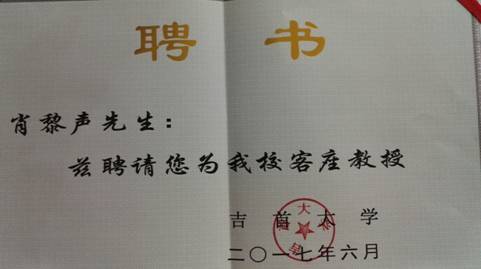 聘 书
肖黎声先生：
兹聘请您为我校客座教授
吉首大学
二〇一七年六月